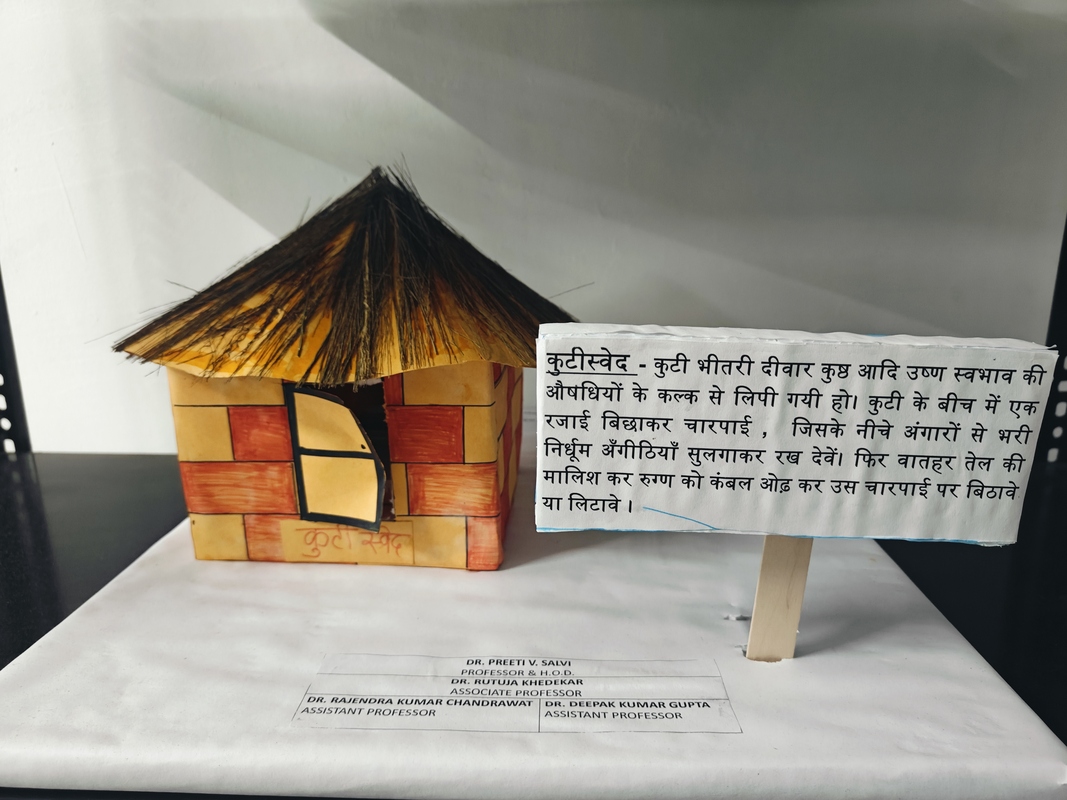 कुटीस्वेद - कुटी भीतरी दीवार कुष्ठ आदि उष्ण स्वभाव की
औषधियों के कल्क से लिपी गयी हो। कुटी के बीच में एक
रजाई बिछाकर चारपाई , जिसके नीचे अंगारों से भरी
निर्धूम अँगीठियाँ सुलगाकर रख देवें। फिर वातहर तेल की
मालिश कर रुग्ण को कंबल ओढ़ कर उस चारपाई पर बिठावे
या लिटावे ।
कुटी स्वेद
DR. PREETI V. SALVI
PROFESSOR & H.O.D.
DR. RUTUJA KHEDEKAR
ASSOCIATE PROFESSOR
DR. RAJENDRA KUMAR CHANDRAWAT
ASSISTANT PROFESSOR
DR. DEEPAK KUMAR GUPTA
ASSISTANT PROFESSOR